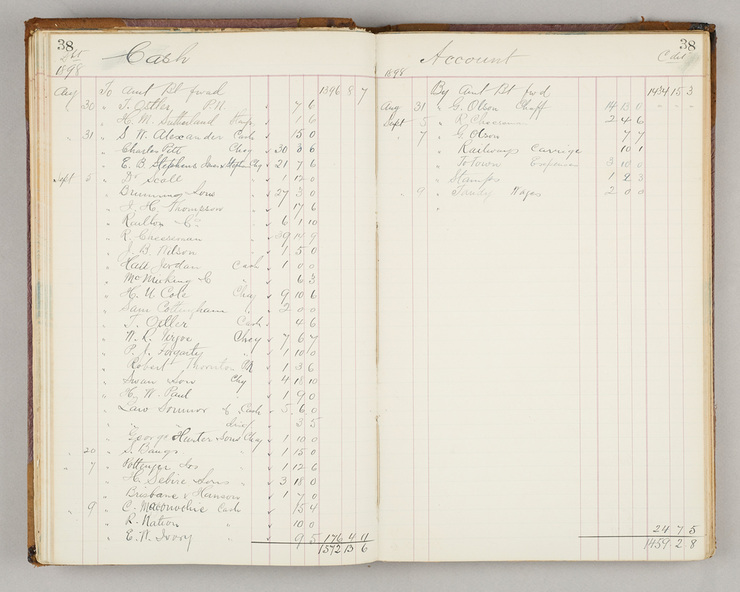 38
Cash
1898
Aug To Amt Bt fwd 1396 8 7
" 30 " T. Ostler P.N. " 7 6
" H. M. Sutherland " 1 6
" 31 " S. W. Alexander Cash " 15 0
" Charles Pitt Cheq " 30 3 6
" E. B. Stephens Cheq " 21 7 6
Sept 5 " Dr Scott " 1 12 0
" Brunning Sons " 27 3 0
" J. H. Thompson " 17 6
" Railton Co " 6 1 10
" R. Cheeseman " 39 14 9
" J. B. Wilson " 1 5 0
" Hall Jordan Cash " 1 0 0
" McMeking & C " 6 3
" H. U. Cole Cheq " 9 10 6
" Sam Cottingham " 2 0 0
" T. Ostler Cash " 4 6
" W. R. Cheq " 7 6 7
" P. J. Fogarty " 1 10 0
" Robert Thornton PN " 1 3 6
" Swan Sons Chq " 4 18 10
" H. W. Paul " 1 9 0
" Law Somner & C Cash " 5 6 0
" " " 3 5
" George Hunter Sons Chq " 1 10 0
" 20 " S. Bangs " " 1 15 0
" 7 " Pottenger Jos " " 1 12 6
" H. Sebire Sons " " 3 18 0
" Brisbane & Hansen " 1 7 0
" 9 " C. Cash " 15 4
" R. Nation " 10 0
" E. W. Ivory " 9 5 176 4 11
1572 13 6
38
Account
1898
By Amt Bt fwd 1434 15 3
Aug 31 " G. Olson Chaff 14 13 0
Sept 5 " R. Cheeseman 2 4 6
" 7 " G. Olson 7 7
" Railways Carriage 10 1
" To Town Expenses 3 10 0
" Stamps 1 2 3
" 9 " Tandy Wages 2 0 0
"
24 7 5
1459 2 8